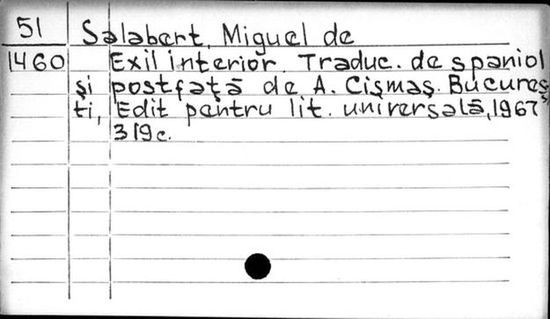 51 Salabert, Miguel de
1460 Exil interior. Traduc. de spaniol
și postfață de A. Cișmaș. Bucureș
ti, Edit pentru lit. universală, 1967
319c.